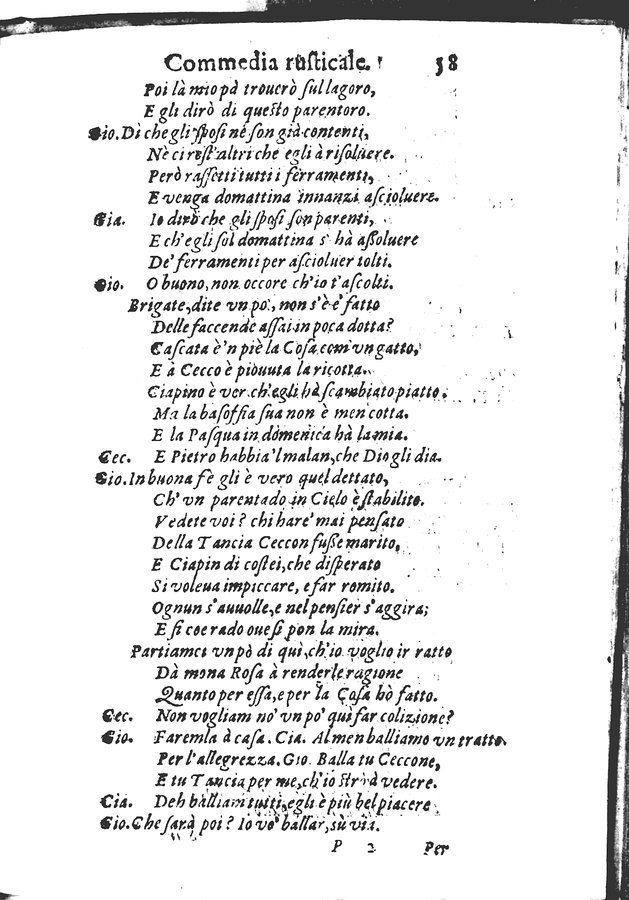 Commedia rusticale. 58
Poi là mio pà trouerò sul lagoro,
E gli dirò di questo parentoro.
Gio. Dì che gli sposi nè son già contenti,
Nè ci rest'altri che egli à risoluere.
Però rassetti tutti i ferramenti,
E venga domattina innanzi ascioluere.
Gia. Io dirò che gli sposi son parenti,
E ch'egli sol domattina s' hà assoluere
De' ferramenti per ascioluer tolti.
Gio. O buono, non occore ch'io t'ascolti.
Brigate, dite vn po', non s'è e' fatto
Delle faccende assai in poca dotta?
Cascata è 'n piè la Cosa com' vn gatto,
E à Cecco è piouuta la ricotta.
Ciapino è ver ch'egli hà scambiato piatto.
Ma la basoffia sua non è men cotta.
E la Pasqua in domenica hà la mia.
Cec. E Pietro habbia 'l malan, che Dio gli dia.
Gio. In buona fè gli è vero quel dettato,
Ch' vn parentado in Cielo è stabilito.
Vedete voi? chi hare' mai pensato
Della Tancia Ceccon fusse marito,
E Ciapin di costei, che disperato
Si voleua impiccare, e far romito.
Ognun s' auuolle, e nel pensier s'aggira;
E si coe rado oue si pon la mira.
Partiamci vn pò di quì, ch'io voglio ir ratto
Dà mona Rosa à renderle ragione
Quanto per essa, e per la Cosa hò fatto.
Cec. Non vogliam no' vn po' quì far colizione?
Gio. Faremla à casa. Cia. Almen balliamo vn tratto.
Per l'allegrezza. Gio. Balla tu Ceccone,
E tu Tancia per me, ch'io starò à vedere.
Cia. Deh balliam tutti, egli è più bel piacere
Gio. Che sarà poi? Io vo' ballar, sù via.
P 2 Per